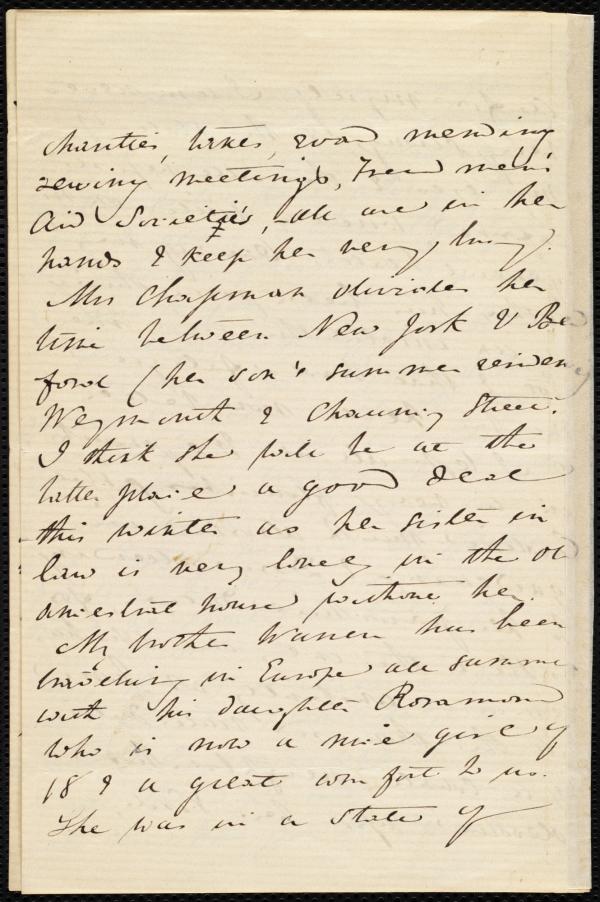 charities, takes, road mending
sewing meetings, Freedmen's
Aid Societies, all are in her
hands & keep her very busy.
Mrs Chapman divides her
time between New York & Bed
ford (her son's summer residence
Weymouth & Chauncy Street.
I think she will be at the
latter place a good deal
this winter as her sister in
law is very lonely in the old
ancestral house without her.
My brother Warren has been
travelling in Europe all summer
with his daughter Rosamond
who is now a nice girl of
18 & a great comfort to us.
She was in a state of